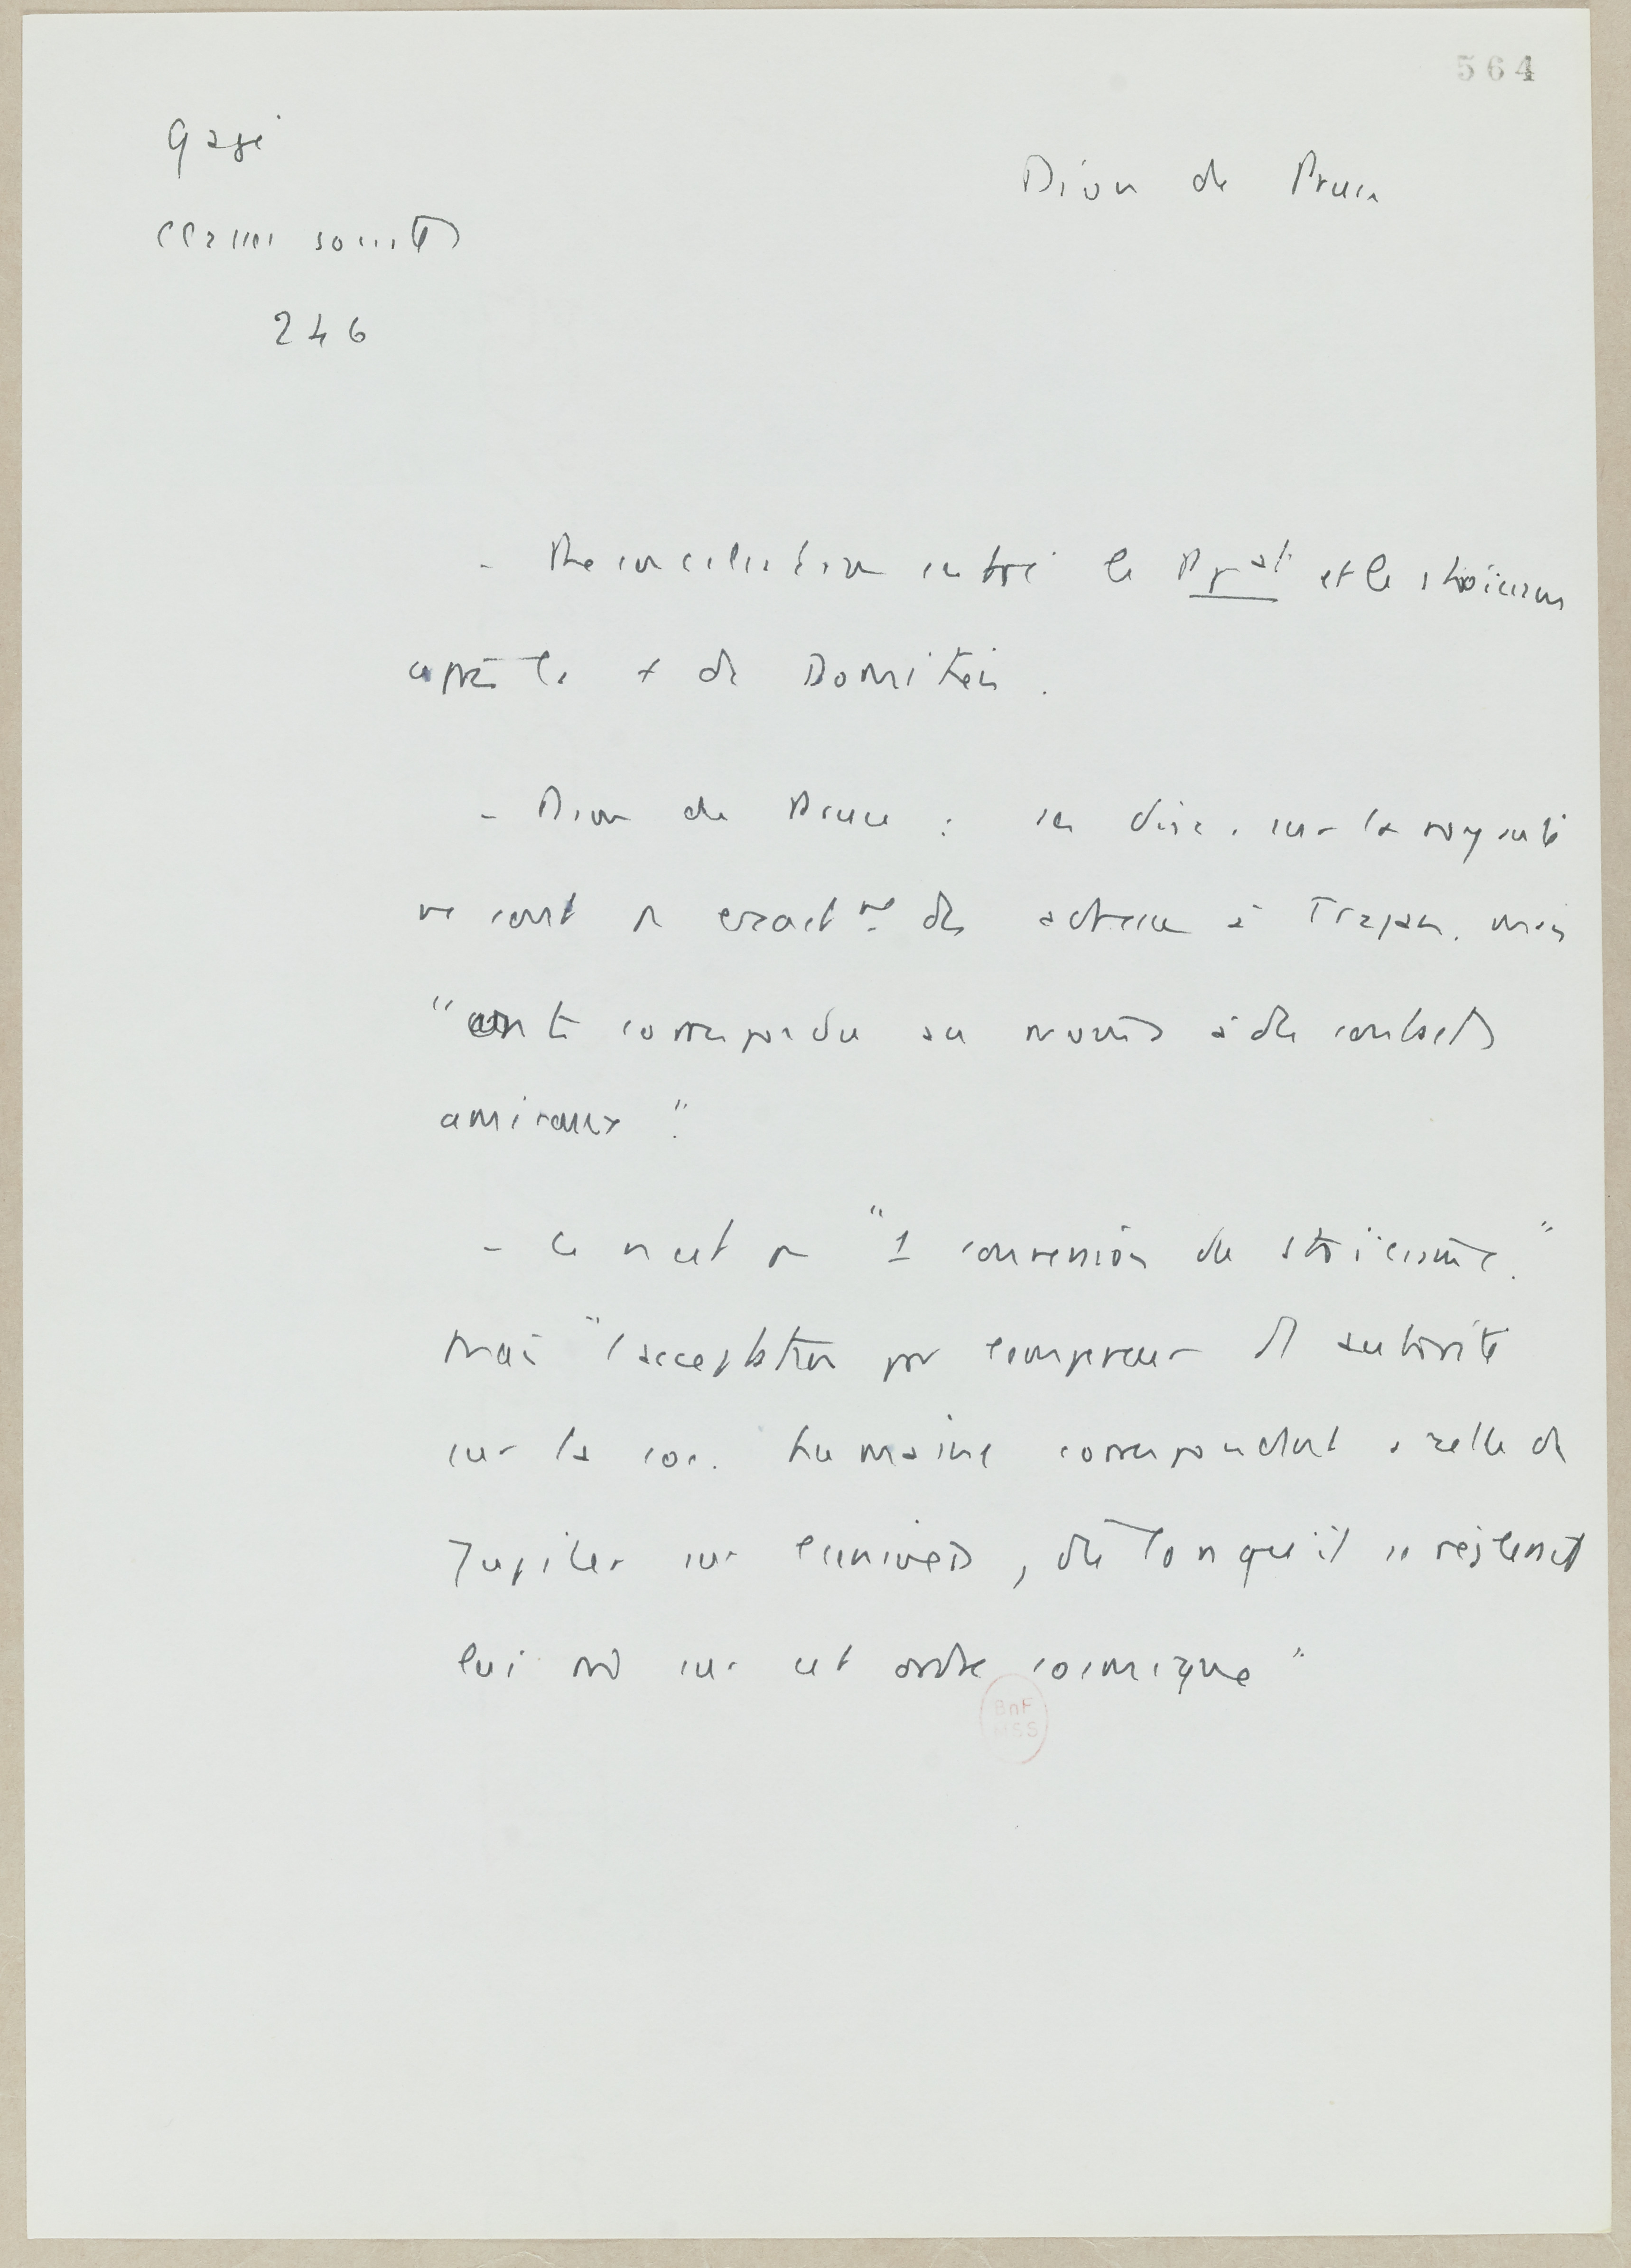 564
Gagé
classes sociales
246
Dion de Pruse
- Reconciliation entre le Ppat et le stoicisme
après la + de Domitien.
- Dion de Pruse : ses disc. sur la royauté
ne sont p exactmt des adresses à Trajan. mais
"ont correspondu au moins à des conseils
amicaux".
- Ce n'est p "1 conversion du stoicisme."
mais "l'acceptation par l'empereur d'1 autorité
sur la soc. humaine correspondant à celle de
Jupiter sur l'univers, dès lors qu'il se réglerait
lui m sur cet ordre cosmique"
BnF
MSS